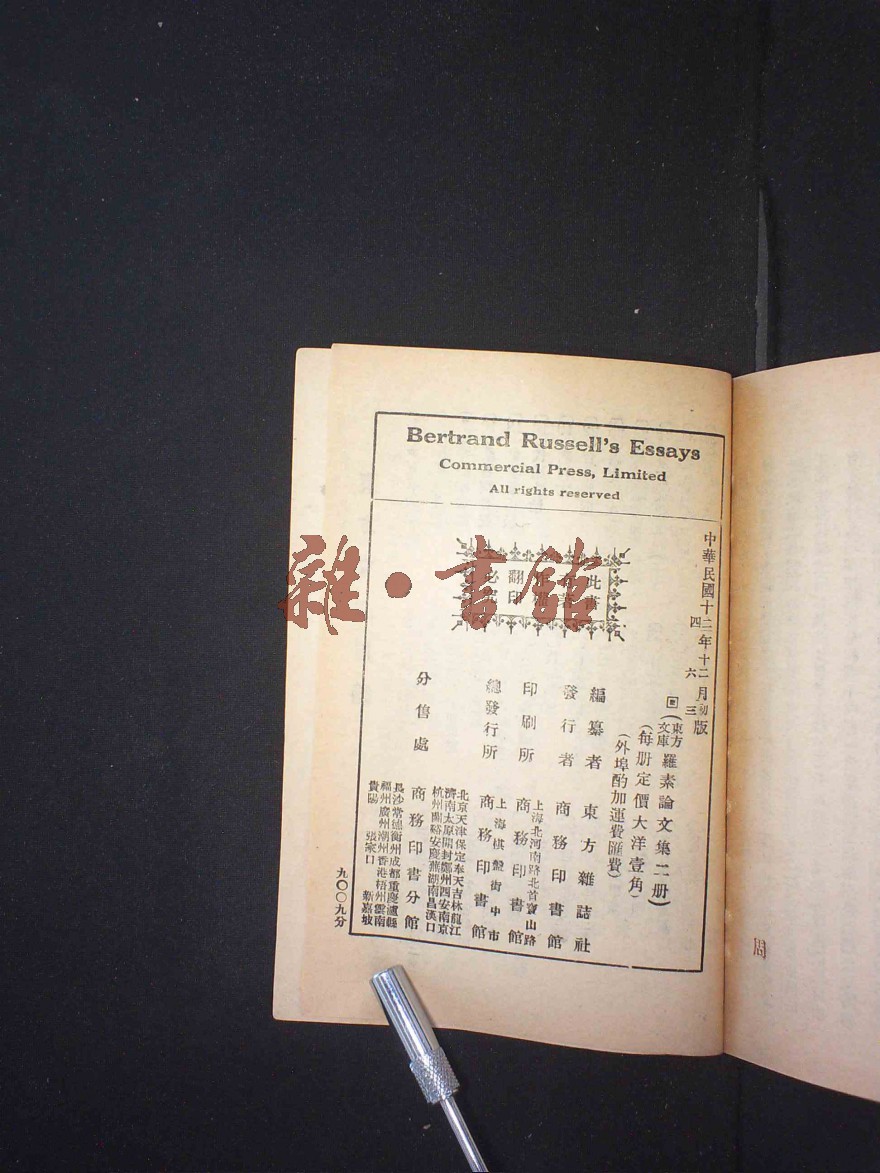 Bertrand Russell's Essays
Commercial Press, Limited
All rights reserved
中華民國十二年十二月初版
四 六 三
(東方文庫)羅素論文集二册)
(每册定價大洋壹角)
(外埠酌加運費匯費)
此書
翻印
必
編纂者 東方雜誌社
發行者 商務印書館
印刷所 上海北河南路北首寶山路
商務印書館
總發行所 上海棋盤街中市
商務印書館
分售處 商務印書分館
北京天津保定奉天吉林龍江
濟南太原開封鄭州西安南京
杭州蘭谿安慶蕪湖南昌漢口
長沙常德衡州成都重慶瀘縣
福州廣州潮州香港梧州雲南
貴陽 張家口 新嘉坡
九〇〇九分
周
雜·書館